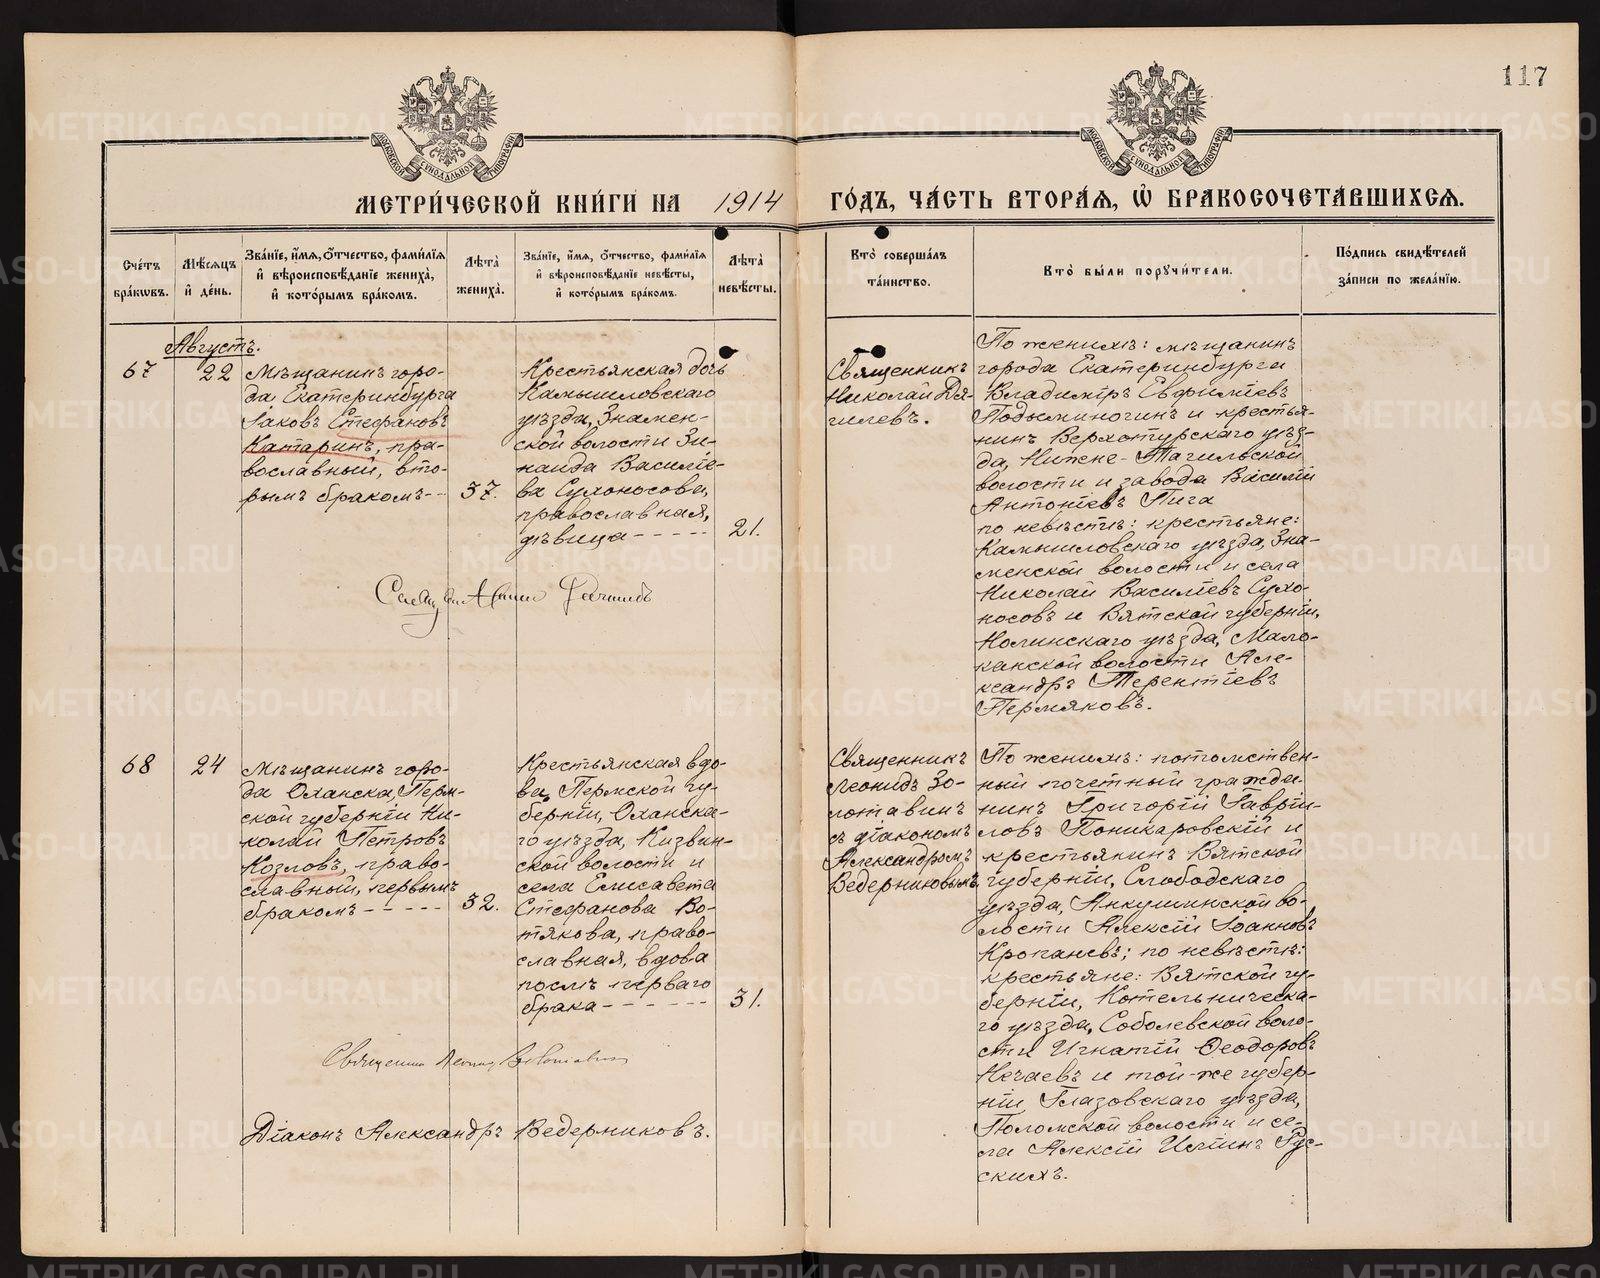 117
МОСКОВСКОЙ СѴНОДАЛЬНОЙ ТИПОГРАФІИ
МОСКОВСКОЙ СѴНОДАЛЬНОЙ ТИПОГРАФІИ
МЕТРИ́ЧЕСКОЙ КНИ́ГИ НА 1914 ГО́ДЪ, ЧА́СТЬ ВТОРА́Ѧ, Ѡ҆ БРАКОСОЧЕТА́ВШИХСѦ.
Сче́тъ
бра́кѡвъ.
Мѣ́сѧцъ
и҆ де́нь.
Зва́нїе, и҆́мѧ, ѻ҆́тчество, фами́лїѧ
и҆ вѣроисповѣ́данїе жениха̀,
и҆ кото́рымъ бра́комъ.
Лѣта̀
жениха̀.
Зва́нїе, и҆́мѧ, ѻ҆́тчество, фами́лїѧ
и҆ вѣроисповѣ́данїе невѣ́сты,
и҆ кото́рымъ бра́комъ.
Лѣта̀
невѣ́сты.
Кто̀ соверша́лъ
та́инство.
Кто̀ бы́ли порꙋчи́тели.
По́дпись свидѣ́телей
за́писи по жела́нїю.
Августъ.
67
22
Мѣщанинъ горо-
да Екатеринбурга
Іаковъ Стефановъ
Катаринъ, пра-
вославный, вто-
рымъ бракомъ--
37.
Крестьянская дочь
Камышловскаго
уѣзда, Знамен-
ской волости Зи-
наида Василіе-
ва Сухоносова,
православная,
дѣвица-----
21.
Священникъ
Николай Дя-
гилевъ.
По женихѣ: мѣщанинъ
города Екатеринбурга
Владиміръ Евфиміевъ
Подыминогинъ и крестья-
нинъ Верхотурскаго уѣз-
да, Нижне-Тагильской
волости и завода Василій
Антоніевъ Пига
по невѣстѣ: крестьяне:
Камышловскаго уѣзда, Зна-
менской волости и села
Николай Василіевъ Сухо-
носовъ и Вятской губерніи,
Нолинскаго уѣзда, Мало-
канской волости Але-
ксандръ Терентіевъ
Пермяковъ.
68
24
Мѣщанинъ горо-
да Оханска, Перм-
ской губерніи Ни-
колай Петровъ
Козловъ, право-
славный, первымъ
бракомъ-----
32.
Крестьянская вдо-
ва, Пермской гу-
берніи, Оханска-
го уѣзда, Кизвин-
ской волости и
села Елисавета
Стефанова Во-
тякова, право-
славная, вдова
послѣ перваго
брака------
31.
Священникъ
Леонидъ Зо-
лотавинъ
съ діакономъ
Александромъ
Ведерниковымъ.
По женихѣ: потомствен-
ный почетный гражда-
нинъ Григорій Гаврии-
ловъ Поникаровскій и
крестьянинъ Вятской
губерніи, Слободскаго
уѣзда, Анкушинской во-
лости Алексій Іоанновъ
Кропачевъ; по невѣстѣ:
крестьяне: Вятской гу-
берніи, Котельническа-
го уѣзда, Соболевской воло-
сти Игнатій Ѳеодоровъ
Нечаевъ и той-же губер-
ніи Глазовскаго уѣзда,
Поломской волости и се-
ла Алексій Иліинъ Рус-
скихъ.
Священникъ Леонидъ Золотавинъ
Діаконъ Александръ Ведерниковъ.
METRIKI.GASO-URAL.RU